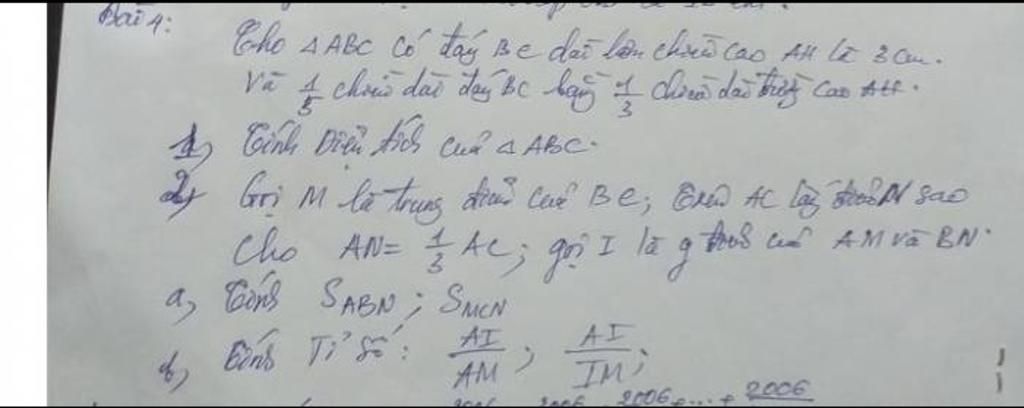 Bài 4:
Cho △ABC có đáy BC dài hơn chiều cao AH là 3cm.
Và 1/5 chiều dài đáy BC bằng 1/3 chiều dài đường cao AH.
1, Tính Diện tích của △ABC.
2, Gọi M là trung điểm của BC; trên AC lấy điểm N sao
cho AN = 1/3 AC; gọi I là g điểm của AM và BN.
a, Tính S_ABN; S_MCN
b, Tính Tỉ số: AI/AM; AI/IM;
2006 2006 2006 + ... + 2006